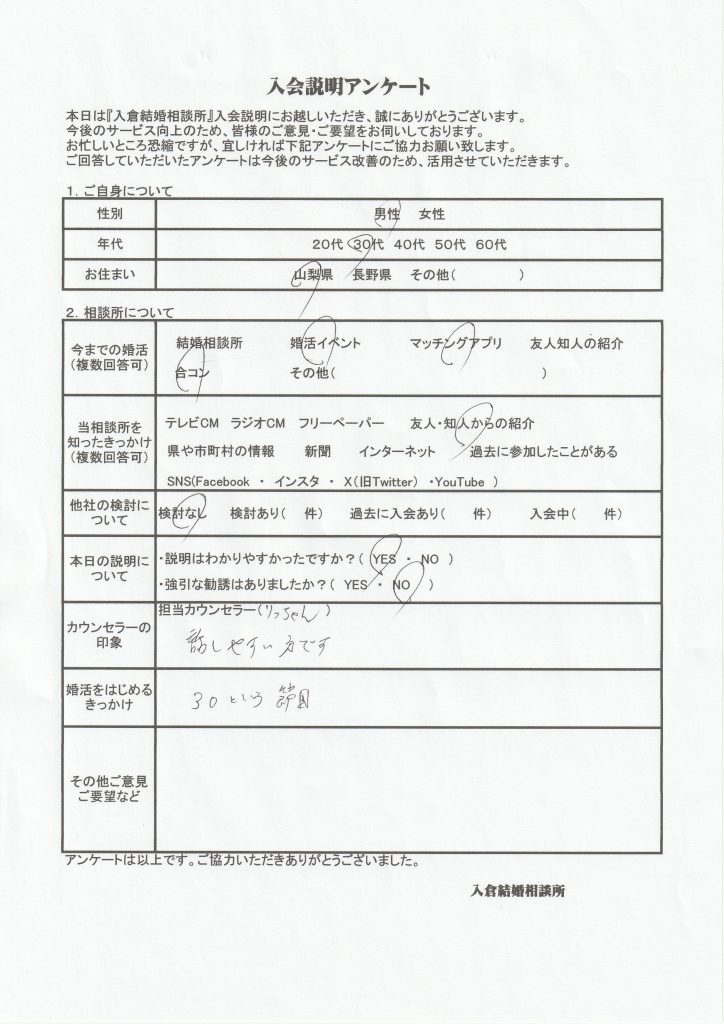 入会説明アンケート
本日は『入倉結婚相談所』入会説明にお越しいただき、誠にありがとうございます。
今後のサービス向上のため、皆様のご意見・ご要望をお伺いしております。
お忙しいところ恐縮ですが、宜しければ下記アンケートにご協力お願い致します。
ご回答していただいたアンケートは今後のサービス改善のため、活用させていただきます。
１．ご自身について
性別 男性 女性
年代 20代 30代 40代 50代 60代
お住まい 山梨県 長野県 その他( )
２．相談所について
今までの婚活
(複数回答可)
結婚相談所 婚活イベント マッチングアプリ 友人知人の紹介
合コン その他( )
当相談所を
知ったきっかけ
(複数回答可)
テレビCM ラジオCM フリーペーパー 友人・知人からの紹介
県や市町村の情報 新聞 インターネット 過去に参加したことがある
SNS(Facebook ・ インスタ ・ X(旧Twitter) ・YouTube )
他社の検討に
ついて
検討なし 検討あり( 件) 過去に入会あり( 件) 入会中( 件)
本日の説明に
ついて
・説明はわかりやすかったですか？( YES ・ NO )
・強引な勧誘はありましたか？( YES ・ NO )
カウンセラーの
印象
担当カウンセラー(りっちゃん)
話しやすい方です
婚活をはじめる
きっかけ
30という節目
その他ご意見
ご要望など
アンケートは以上です。ご協力いただきありがとうございました。
入倉結婚相談所